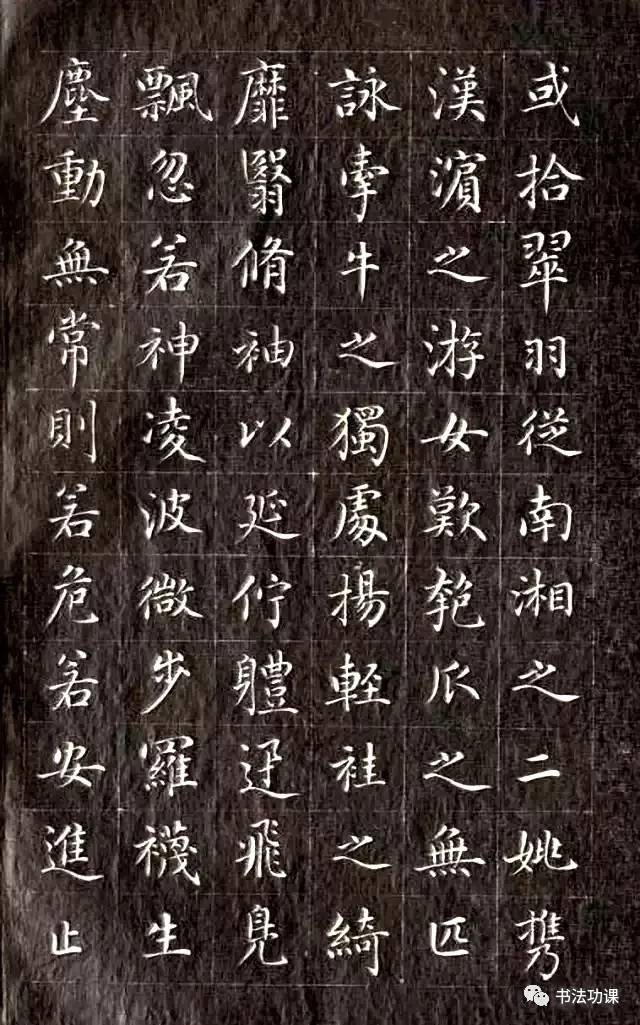 或拾翠羽從南湘之二姚攜
漢濱之游女歎匏瓜之無匹
詠牽牛之獨處揚輕袿之綺
靡翳脩袖以延佇體迅飛鳧
飄忽若神凌波微步羅襪生
塵動無常則若危若安進止
书法功课